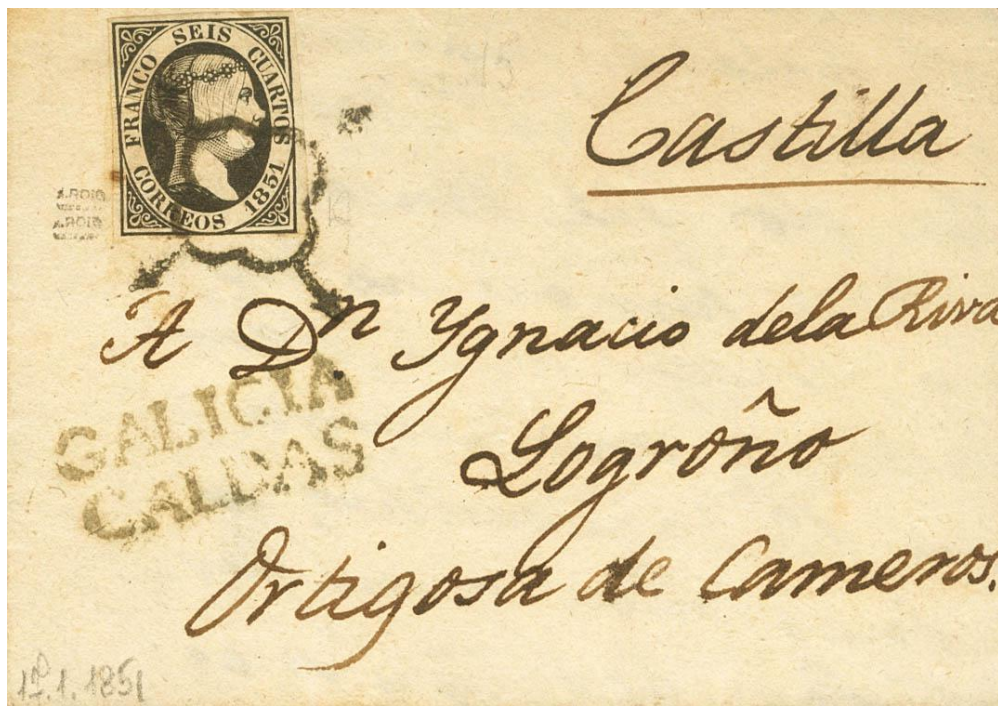 FRANCO SEIS CUARTOS
CORREOS 1851
Castilla
A.ROIG
A.ROIG
A Dn Ygnacio dela Riva
GALICIA
CALDAS
Logroño
Ortigosa de Cameros.
1851